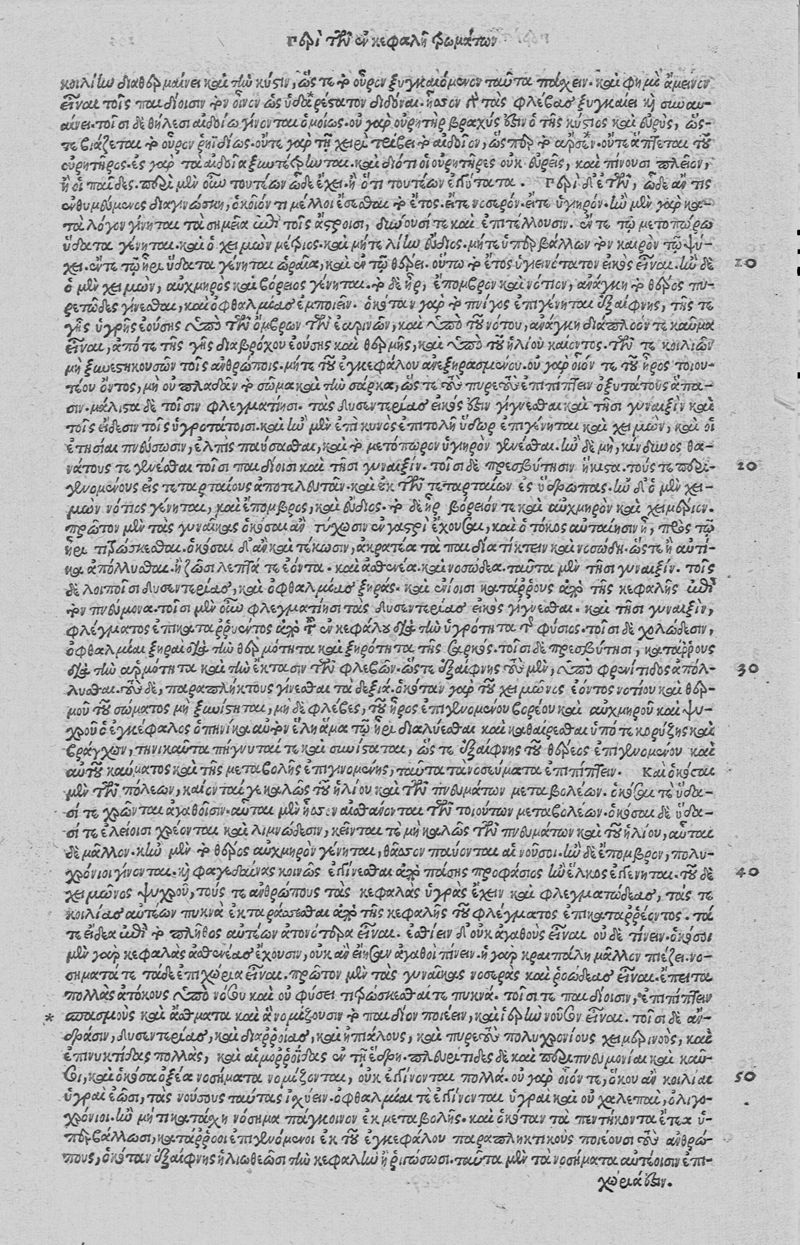 Περὶ τῶν ἐν κεφαλῇ τρωμάτων
κοιλίην διαθερμαίνει καὶ τὴν κύστιν, ὥς τε τὸ οὖρον ξυγκαιόμενον ταῦτα πάχειν. καὶ φημὶ ἄμεινον
εἶναι τοῖς παιδίοισιν τὸν οἶνον ὡς ὑδαρέστατον διδόναι. ἧσσον γὰρ τὰς φλέβας ξυγκαίει καὶ συναυ-
αίνει. τοῖσι δὲ θήλεσι λιθοι γίνονται ὁμοίως. οὐ γὰρ οὐρητὴρ βραχύς ἐστιν ὁ τῆς κύστιος καὶ εὐρύς, ὥς-
τε βιάζεται τὸ οὖρον ῥηϊδίως. οὔτε γὰρ τῇ χειρὶ τρίβει τὸ αἰδοῖον, ὥσπερ τὸ ἄρσεν. οὔτε ἅπτεται τοῦ
οὐρητῆρος. ἐς γὰρ τὰ αἰδοῖα ξυντέτρηνται. καὶ διότι οἱ οὐρητῆρες οὐκ εὐρεῖς, καὶ πίνουσι πλεῖον,
ἢ οἱ παῖδες. περὶ μὲν οὖν τουτέων ὧδε ἔχει. ἢ ὅτι τουτέων ἐγγύτατα. Περὶ δὲ τῶν, ὧδε ἄν τις
ἐνθυμεύμενος διαγινώσκῃ, ὁκοῖόν τι μέλλοι ἔσεσθαι τὸ ἔτος. εἴτε νοσερόν. εἴτε ὑγιηρόν. ἢν μὲν γὰρ κα-
τὰ λόγον γίνηται τὰ σημεῖα ἐπὶ τοῖς ἄστροισι, δύνουσί τε καὶ ἐπιτέλλουσιν. ἔν τε τῷ μετοπώρῳ
ὕδατα γένηται. καὶ ὁ χειμὼν μέτριος. καὶ μήτε λίην εὔδιος. μήτε ὑπερβάλλων τὸν καιρὸν τῷ ψύ-
χει. ἔν τε τῷ ἦρι ὕδατα γένηται ὡραῖα, καὶ ἐν τῷ θέρει. οὕτω τὸ ἔτος ὑγιεινότατον εἰκὸς εἶναι. ἢν δὲ 10
ὁ μὲν χειμών, αὐχμηρὸς καὶ βόρειος γένηται. τὸ δὲ ἦρ, ἔπομβρον καὶ νότιον, ἀνάγκη τὸ θέρος πυ-
ρετῶδες γίνεσθαι, καὶ ὀφθαλμίας ἐμποιεῖν. ὁκόταν γὰρ τὸ πνῖγος ἐπιγένηται ἐξαίφνης, τῆς τε
γῆς ὑγρῆς ἐούσης ὑπὸ τῶν ὄμβρων τῶν ἐαρινῶν, καὶ ὑπὸ τοῦ νότου, ἀνάγκη διαπλόον τε καῦμα
εἶναι, ἀπό τε τῆς γῆς διαβρόχου ἐούσης καὶ θερμῆς, καὶ ὑπὸ τοῦ ἡλίου καίοντος. τῶν τε κοιλιῶν
μὴ ξυνεστηκουσῶν τοῖς ἀνθρώποις. μήτε τοῦ ἐγκεφάλου ἀνεξηρασμένου. οὐ γὰρ οἷόν τε τοῦ ἦρος τοιου-
τέου ὄντος, μὴ οὐ πλαδᾶν τὸ σῶμα καὶ τὴν σάρκα, ὥς τε τοὺς πυρετοὺς ἐπιπίπτειν ὀξυτάτους ἅπα-
σιν. μάλιστα δὲ τοῖσιν φλεγματίῃσι. τὰς δυσεντερίας εἰκός ἐστιν γίγνεσθαι καὶ τῇσι γυναιξὶν καὶ
τοῖς εἴδεσιν τοῖς ὑγροτάτοισι. καὶ ἢν μὲν ἐπὶ κυνὸς ἐπιτολῇ ὕδωρ ἐπιγένηται καὶ χειμών, καὶ οἱ
ἐτησίαι πνεύσωσιν, ἐλπὶς παύσασθαι, καὶ τὸ μετόπωρον ὑγιηρὸν γενέσθαι. ἢν δὲ μή, κίνδυνος θα-
νάτους τε γενέσθαι τοῖσι παιδίοισι καὶ τῇσι γυναιξίν. τοῖσι δὲ πρεσβύτῃσιν ἥκιστα. τούς τε περι- 20
γενομένους εἰς τεταρταίους ἀποτελευτᾶν. καὶ ἐκ τῶν τεταρταίων ἐς ὕδρωπας. ἢν δ' ὁ μὲν χει-
μὼν νότιος γένηται, καὶ ἔπομβρος, καὶ εὔδιος. τὸ δὲ ἦρ βόρειόν τε καὶ αὐχμηρὸν καὶ χειμέριον.
πρῶτον μὲν τὰς γυναῖκας ὁκόσαι ἂν τύχωσιν ἐν γαστρὶ ἔχουσαι, καὶ ὁ τόκος αὐταῖσιν ᾖ, πρὸς τῷ
ἦρι τιτρώσκεσθαι. ὁκόσαι δ' ἂν καὶ τέκωσιν, ἀκρατέα τὰ παιδία τίκτειν καὶ νοσώδη. ὥστε ἢ αὐτί-
κα ἀπόλλυσθαι. ἢ ζῶσι λεπτά τε ἐόντα. καὶ ἀσθενέα. καὶ νοσώδεα. ταῦτα μὲν τῇσι γυναιξίν. τοῖς
δὲ λοιποῖσι δυσεντερίας, καὶ ὀφθαλμίας ξηράς. καὶ ἐνίοισι κατάρρους ἀπὸ τῆς κεφαλῆς ἐπὶ
τὸν πνεύμονα. τοῖσι μὲν οὖν φλεγματίῃσι τὰς δυσεντερίας εἰκὸς γίγνεσθαι. καὶ τῇσι γυναιξίν,
φλέγματος ἐπικαταρρυέντος ἀπὸ τοῦ ἐγκεφάλου διὰ τὴν ὑγρότητα τῆς φύσιος. τοῖσι δὲ χολώδεσιν,
ὀφθαλμίαι ξηραὶ διὰ τὴν θερμότητα καὶ ξηρότητα τῆς σαρκός. τοῖσι δὲ πρεσβύτῃσι, κατάρρους
διὰ τὴν ἀραιότητα καὶ τὴν ἔκτασιν τῶν φλεβῶν. ὥστε ἐξαίφνης τοὺς μὲν, ὑπὸ φρενίτιδος ἀπόλ- 30
λυσθαι. τοὺς δὲ, παραπλήκτους γίνεσθαι τὰ δεξιά. ὁκόταν γὰρ τοῦ χειμῶνος ἐόντος νοτίου καὶ θερ-
μοῦ τοῦ σώματος μὴ ξυνίστηται, μὴ δὲ φλέβες, τοῦ ἦρος ἐπιγενομένου βορέου καὶ αὐχμηροῦ καὶ ψυ-
χροῦ ὁ ἐγκέφαλος ὁπηνίκα αὐτὸν ἔδει ἅμα τῷ ἦρι διαλύεσθαι καὶ καθαίρεσθαι ὑπό τε κορύζης καὶ
βράγχων, τηνικαῦτα πήγνυταί τε καὶ συνίσταται, ὥς τε ἐξαίφνης τοῦ θέρεος ἐπιγενομένου καὶ
αὐτοῦ καύματος καὶ τῆς μεταβολῆς ἐπιγινομένης, ταῦτα τὰ νοσεύματα ἐπιπίπτειν. Καὶ ὁκόσαι
μὲν τῶν πόλεων, κέονταί γε καλῶς τοῦ ἡλίου καὶ τῶν πνευμάτων μεταβολέων. ὁκόσαι τε ὕδα-
σί τε χρῶνται ἀγαθοῖσιν. αὗται μὲν ἧσσον αἰσθάνονται τῶν τοιούτων μεταβολέων. ὁκόσαι δὲ ὕδα-
σί τε ἑλείοισι χρέονται καὶ λιμνώδεσιν, κεῖνταί τε μὴ καλῶς τῶν πνευμάτων καὶ τοῦ ἡλίου, αὗται
δὲ μᾶλλον. κἢν μὲν τὸ θέρος αὐχμηρὸν γένηται, θᾶσσον παύονται αἱ νοῦσοι. ἢν δὲ ἔπομβρον, πολυ-
χρόνιοι γίνονται. καὶ φαγεδαίνας κοινῶς ἐγγίνεσθαι ἀπὸ πάσης προφάσιος ἢν ἕλκος ἐγγένηται. τοῦ δὲ 40
χειμῶνος ψυχροῦ, τούς τε ἀνθρώπους τὰς κεφαλὰς ὑγρὰς ἔχειν καὶ φλεγματώδεας, τάς τε
κοιλίας αὐτέων πυκνὰ ἐκταράσσεσθαι ἀπὸ τῆς κεφαλῆς τοῦ φλέγματος ἐπικαταρρέοντος. τά
τε εἴδεα ἐπὶ τὸ πλῆθος αὐτέων ἀτονώτερα εἶναι. ἐσθίειν δ' οὐκ ἀγαθοὺς εἶναι οὐδὲ πίνειν. ὁκόσοι
μὲν γὰρ κεφαλὰς ἀσθενέας ἔχουσιν, οὐκ ἂν εἴησαν ἀγαθοὶ πίνειν. ἡ γὰρ κραιπάλη μᾶλλον πιέζει. νο-
σήματά τε τάδε ἐπιχώρια εἶναι. πρῶτον μὲν τὰς γυναῖκας νοσερὰς καὶ ῥοώδεας εἶναι. ἔπειτα
πολλὰς ἀτόκους ὑπὸ νούσου καὶ οὐ φύσει τιτρώσκεσθαί τε πυκνά. τοῖσί τε παιδίοισιν, ἐπιπίπτειν
* σπασμοὺς καὶ ἄσθματα καὶ ἃ νομίζουσιν τὸ παιδίον ποιέειν, καὶ ἱερὴν νοῦσον εἶναι. τοῖσι δὲ ἀν-
δράσιν, δυσεντερίας, καὶ διαρροίας, καὶ ἠπιάλους, καὶ πυρετοὺς πολυχρονίους χειμερινούς, καὶ
ἐπινυκτίδας πολλάς, καὶ αἱμορροΐδας ἐν τῇ ἕδρῃ. πλευρίτιδες δὲ καὶ περιπνευμονίαι καὶ καῦ-
σοι, καὶ ὁκόσα ὀξέα νοσήματα νομίζονται, οὐκ ἐγγίνονται πολλά. οὐ γὰρ οἷόν τε, ὅκου ἂν κοιλίαι 50
ὑγραὶ ἔωσι, τὰς νούσους ταύτας ἰσχύειν. ὀφθαλμίαι τε ἐγγίνονται ὑγραὶ καὶ οὐ χαλεπαί, ὀλιγο-
χρόνιοι. ἢν μή τι κατάσχῃ νόσημα πάγκοινον ἐκ μεταβολῆς. καὶ ὁκόταν τὰ πεντήκοντα ἔτεα ὑ-
περβάλλωσι, κατάρροοι ἐπιγενόμενοι ἐκ τοῦ ἐγκεφάλου παραπληκτικοὺς ποιέουσι τοὺς ἀνθρώ-
πους, ὁκόταν ἐξαίφνης ἡλιωθέωσι τὴν κεφαλὴν ἢ ῥιγώσωσι. ταῦτα μὲν τὰ νοσήματα αὐτέοισιν ἐπι-
χώριά ἐστιν.